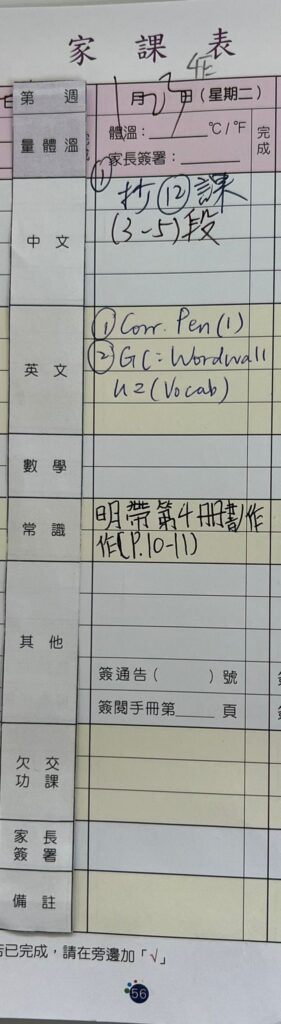 家課表
4E
第 週
1月23日(星期二)
量體溫
體溫:______°C/°F
家長簽署:______
完成
中文
① 抄⑫課
(3-5)段
英文
① Corr. Pen(1)
② GC: Wordwall
U2(Vocab)
數學
常識
明帶第4冊書作
作(P.10-11)
其他
簽通告( )號
簽閱手冊第____頁
欠交
功課
家長
簽署
備註
若已完成,請在旁邊加「√」
56